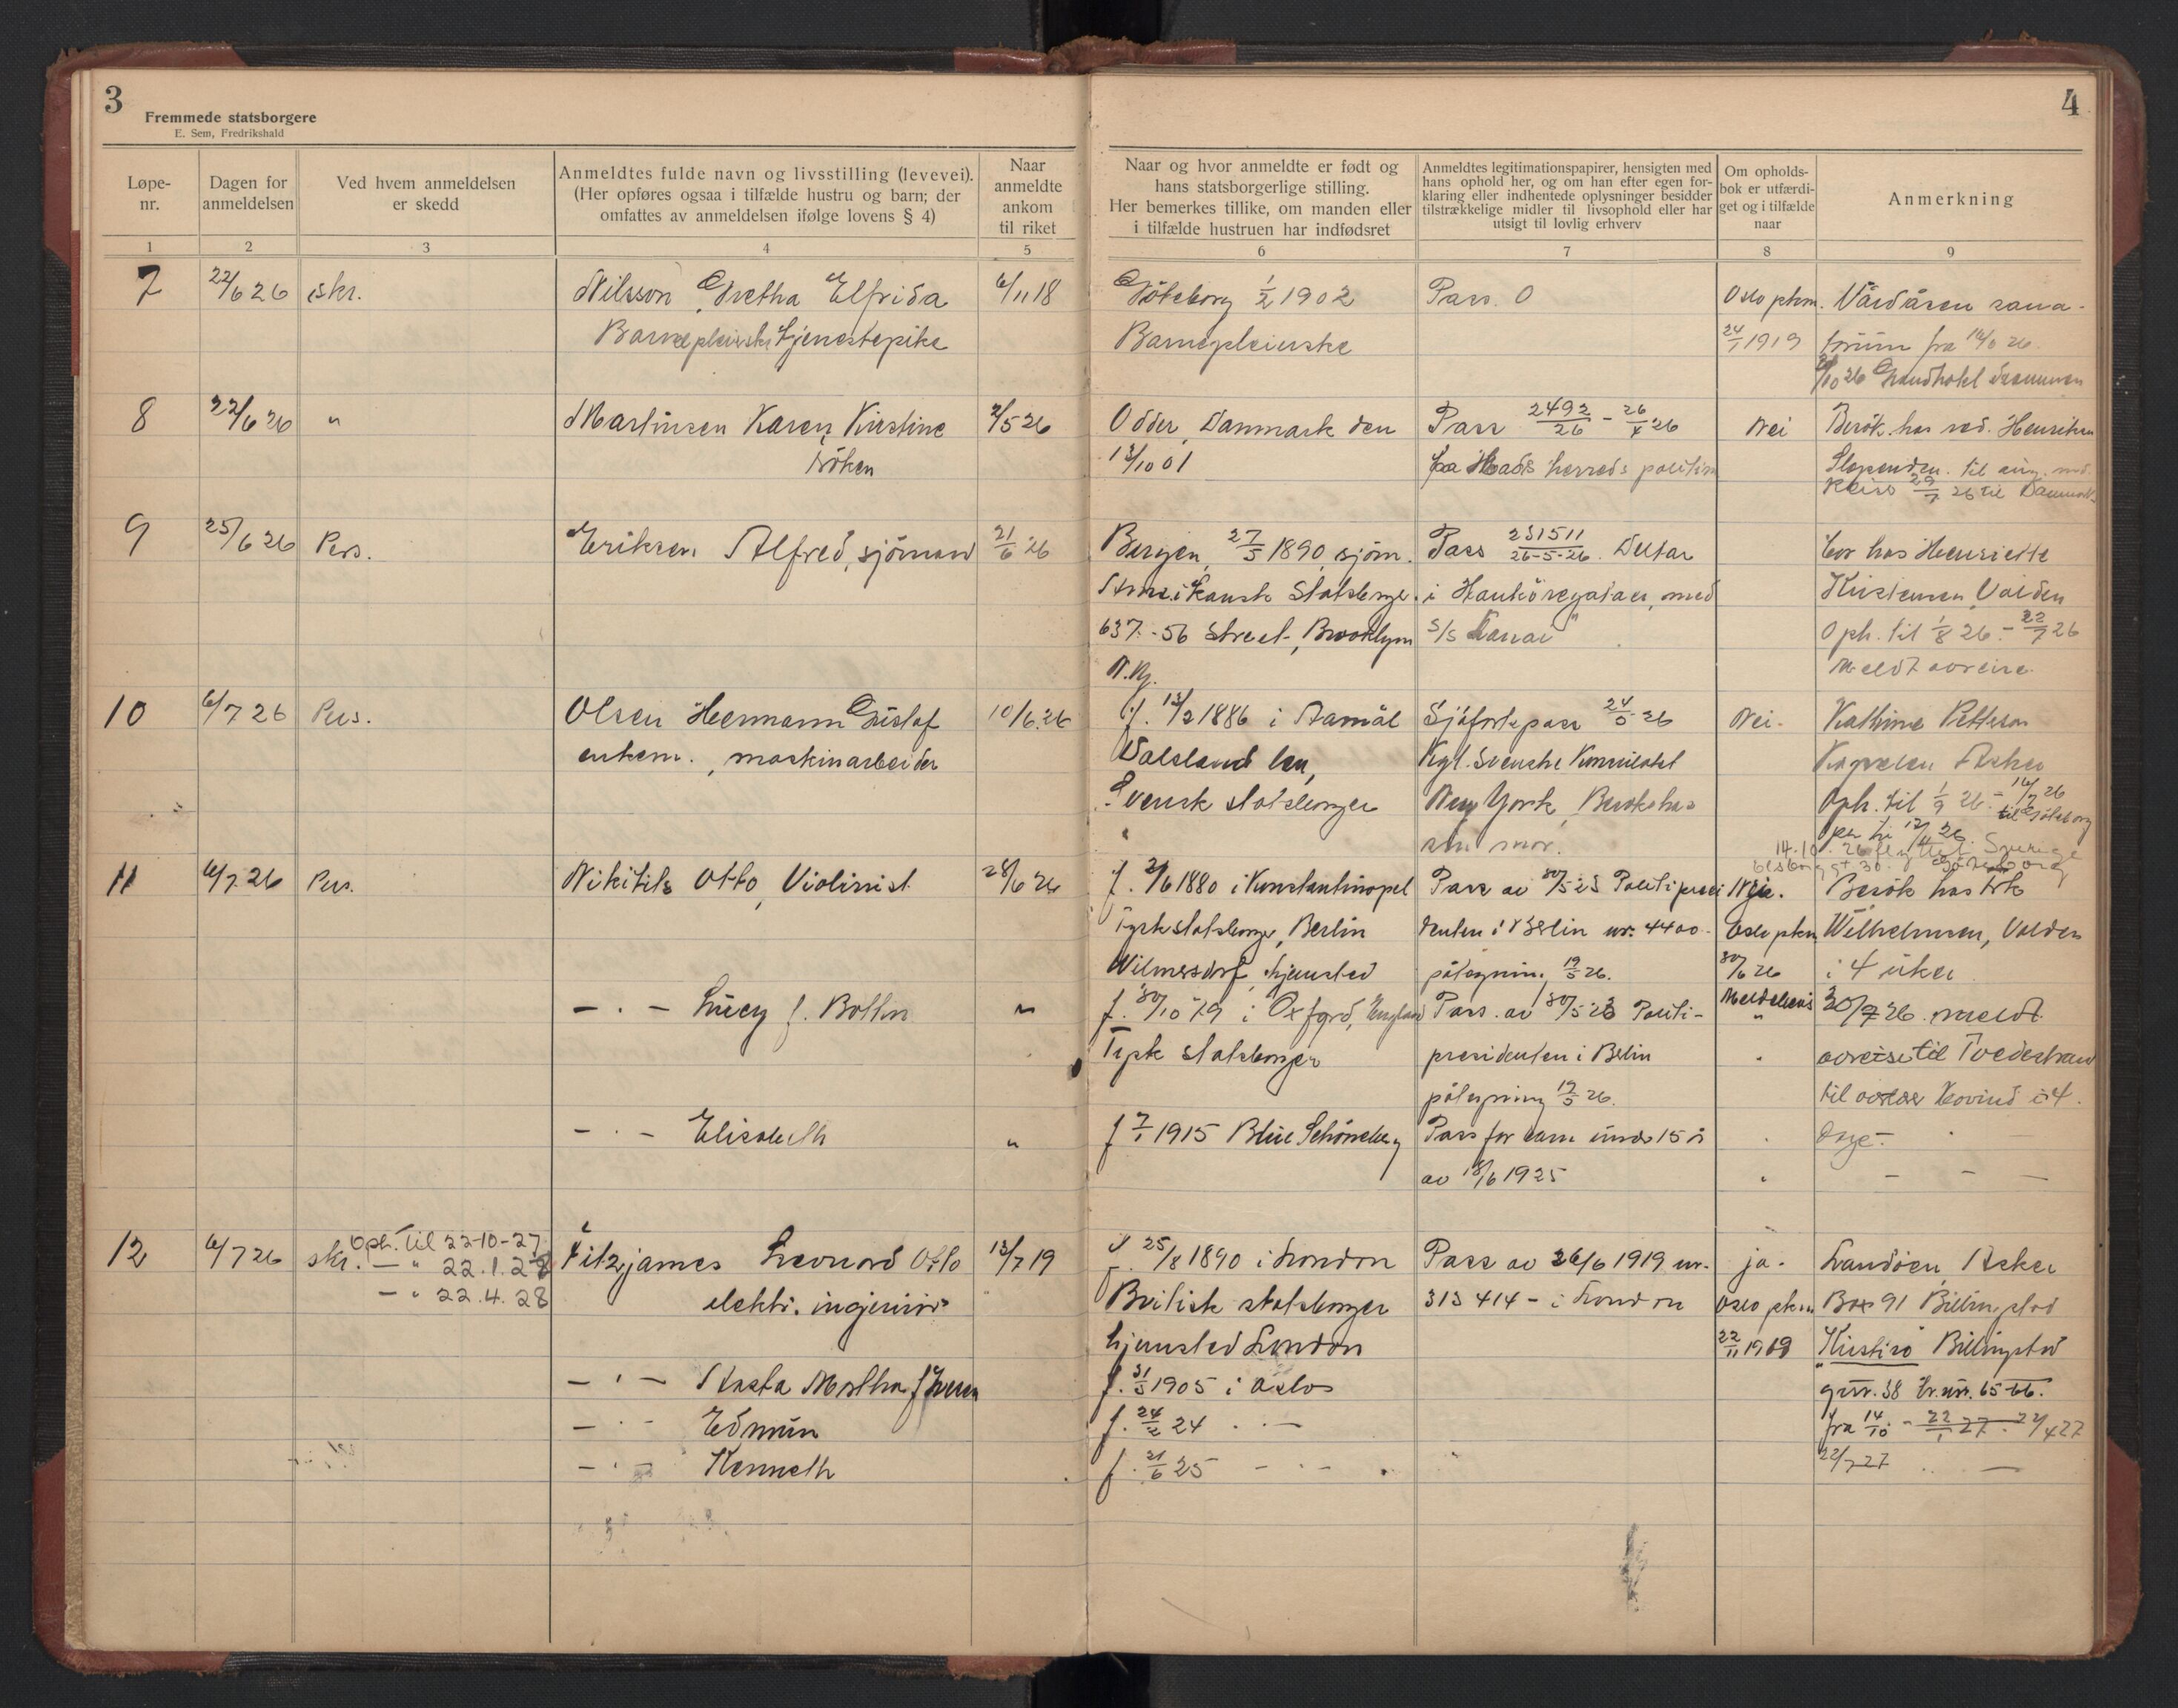 3
Fremmede statsborgere
E. Sem, Fredrikshald
Løpe-
nr.
Dagen for
anmeldelsen
Ved hvem anmeldelsen
er skedd
Anmeldtes fulde navn og livsstilling (levevei).
(Her opføres ogsaa i tilfælde hustru og barn; der
omfattes av anmeldelsen ifølge lovens § 4)
Naar
anmeldte
ankom
til riket
1 2 3 4 5
7 22/6 26 skr. Nilsson, Gretha Elfrida 6/11 18
Barnepleierske tjenestepike
8 22/6 26 " Martinsen Karen Kirstine 2/5 26
fröken
9 25/6 26 Pers. Eriksen Alfred, sjömand 21/6 26
10 6/7 26 Pers. Olsen Hermann Gustaf 10/6 26
enkem., maskinarbeider
11 6/7 26 Pers. Nikitits Otto, Violinist 28/6 26
— · — Lucy f. Bolton "
— · — Elisabeth "
12 6/7 26 skr. Oph. til 22-10-27 Fitzjames Leonard Otto 13/7 19
— " 22.1.28
— " 22.4.28 elektr. ingeniör
— · — Aasta Martha f. Iversen
— · — Edmun
— · — Kenneth
4
Naar og hvor anmeldte er født og
hans statsborgerlige stilling.
Her bemerkes tillike, om manden eller
i tilfælde hustruen har indfødsret
Anmeldtes legitimationspapirer, hensigten med
hans ophold her, og om han efter egen for-
klaring eller indhentede oplysninger besidder
tilstrækkelige midler til livsophold eller har
utsigt til lovlig erhverv
Om opholds-
bok er utfærdi-
get og i tilfælde
naar
Anmerkning
6 7 8 9
Göteborg 1/2 1902 Pass. O Oslo pkm. Vardåsen sana-
Barnepleierske 24/1 1919 torium fra
26 Grandhotel Drammen
Odder, Danmark den Pass 2492/26 - 26/4 26 Nei Besök hos red. Henriksen
13/10 01 fra Hads herreds politim
Slependen. til aug. md.
Reise 29/7 26 til Danmark
Bergen, 27/5 1890, sjöm. Pass 231511/26-5-26. Deltar bor hos Henriette
Amerikansk Statsborger. i Hanköregataen, med Kristensen, Valden
637 - 56 Street, Brooklyn S/S Oph. til 1/8 26 - 22/7 26
N.Y. Meldt avreise.
f. 13/2 1886 i Aamål Sjöfartspass 24/5 26 Nei. Kathrine Pettersen
Dalsland len, Kgl. Svenske Konsulatet Asker
Svensk statsborger New York, Besök hos Oph. til 1/9 26 - 16/7 26
til Göteborg
sin mor.
14.10.26 Sverige
Göteborg
f. 2/6 1880 i Konstantinopel Pass av 30/5 25 Politipresi Nei. Besök hos frk
Tysk statsborger, Berlin denten i Berlin nr. 4400 - Oslo pkm Wilhelmsen, Valden
Wilmersdorf, hjemsted påtegning 19/5 26. 30/6 26 i 4 uker
f. 30/10 79 i Oxford, England Pass. av 30/5 25 Politi- Meldebevis 30/7 26 meldt
Tysk statsborger presidenten i Berlin " avreise til Tvedestrand
påtegning 19/5 26. til i 4.
f 7/1 1915 Berlin Schöneberg Pass for barn under 15 år dage. —
av 18/6 1925 " — — —
f. 25/8 1890 i London Pass av 26/6 1919 nr. ja. Landöen, Asker
Britisk statsborger 313414 - i London Oslo pkm Box 91 Billingstad
hjemsted London 22/11 1919 "Kirstiro" Billingstad
f. 31/5 1905 i Oslo gnr. 38 br. nr. 65-66.
f. 24/2 24 · — fra 14/10 - 22/1 27. 22/4 27
f. 21/6 25 — · — 22/7 27 —